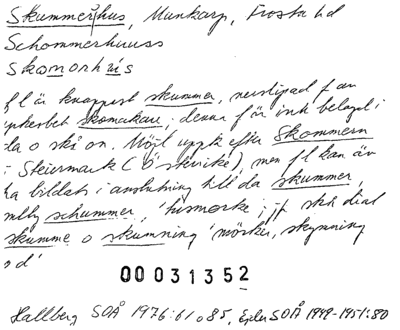 Skummerhus, Munkarp, Frosta hd
Schommerhuuss
Skomorhås
fl är knappast skumma, nerslipad f av
yrkesbet skomakare; denna f är inte belagd i
da o skå on. Möjl uppk efter Skommern
i Steiermark (Österrike), men fl kan äv
ha bildats i anslutning till da skummer
mlty schummer, 'husmörke; jf skå dial
skumme o skumning 'mörker, skymning
od'
00031352
Hallberg SOÅ 1976:61 o 85, Ejder SOÅ 1949-1951:80